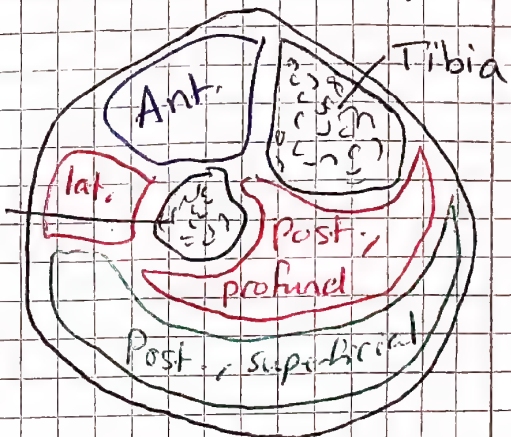 Tibia
Ant.
lat.
Post.,
profund
Post., superficial